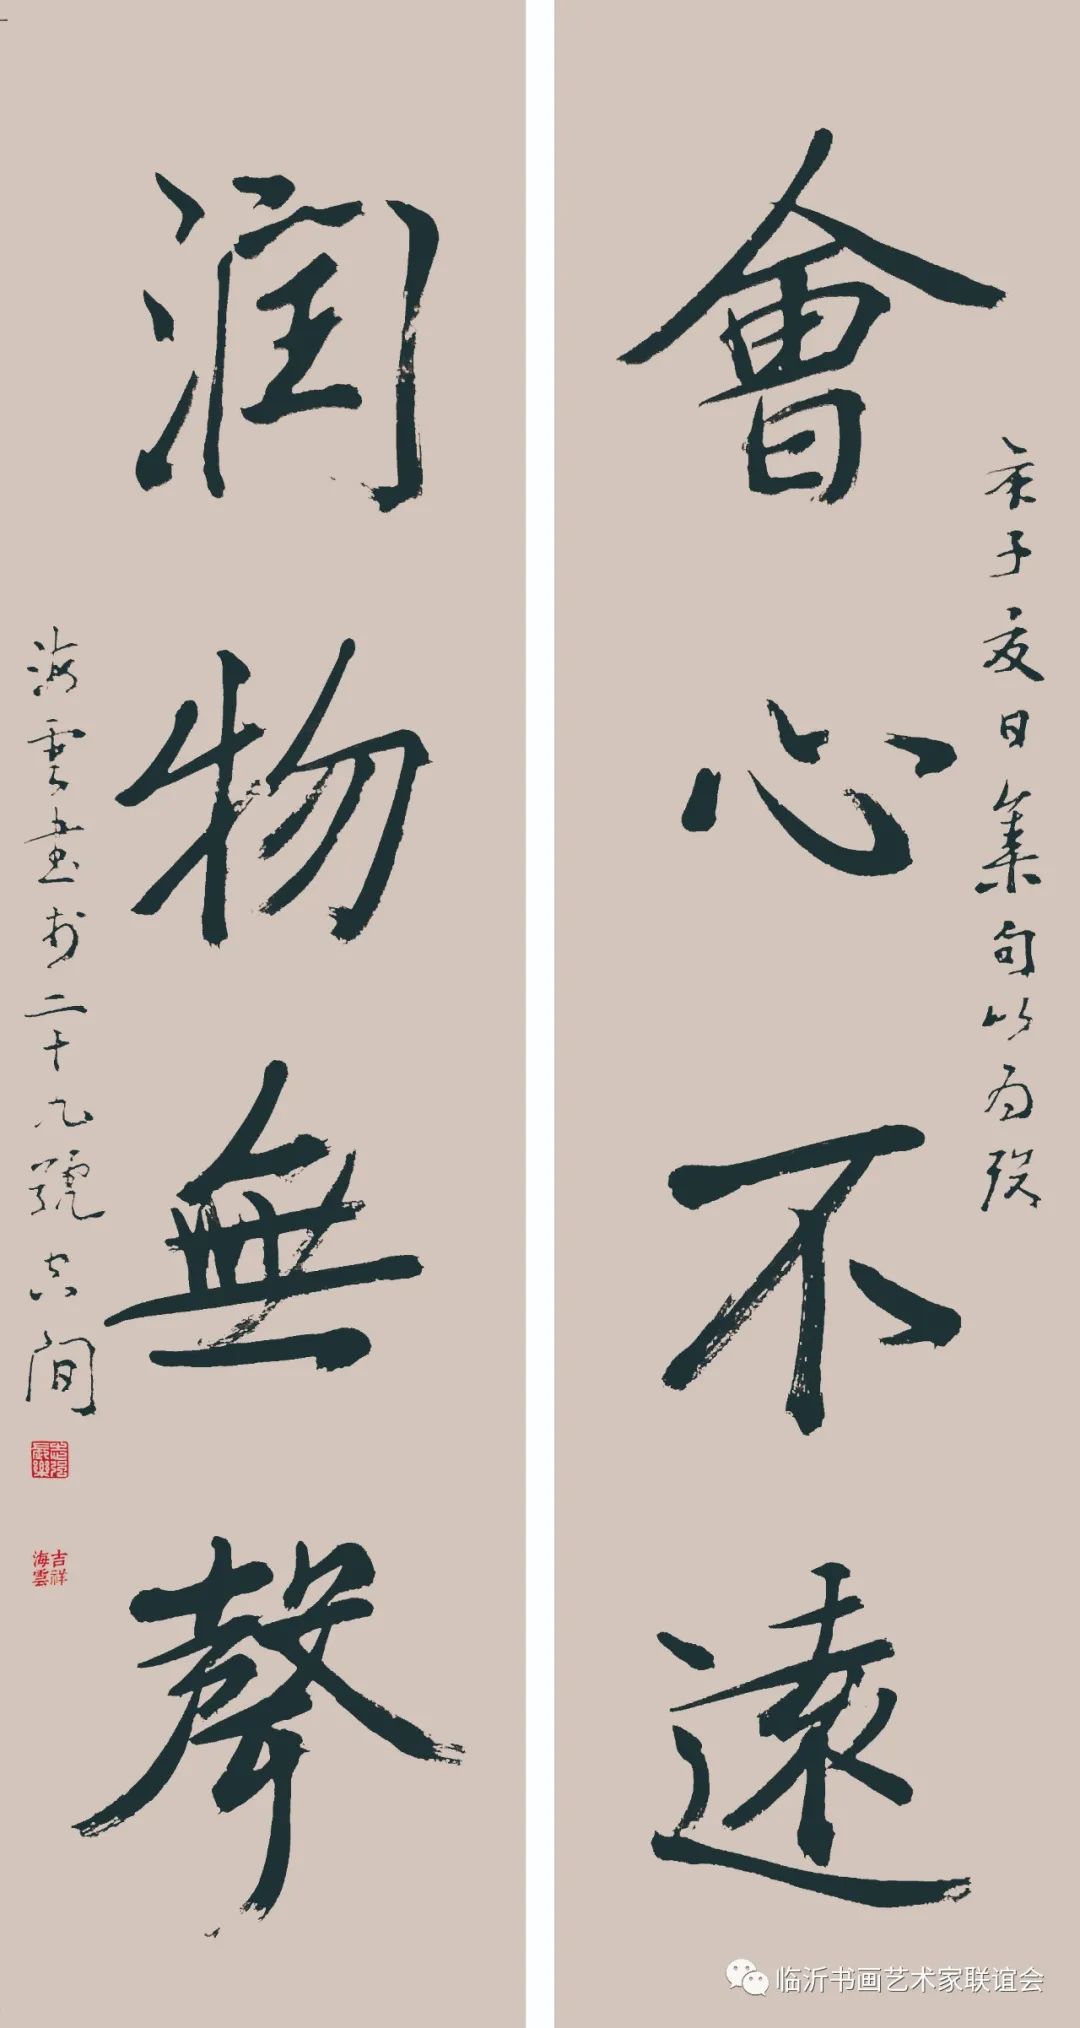 會心不遠
庚子夏日集句以为
润物無聲
海雲書於二十九號空间
吉祥海雲
临沂书画艺术家联谊会